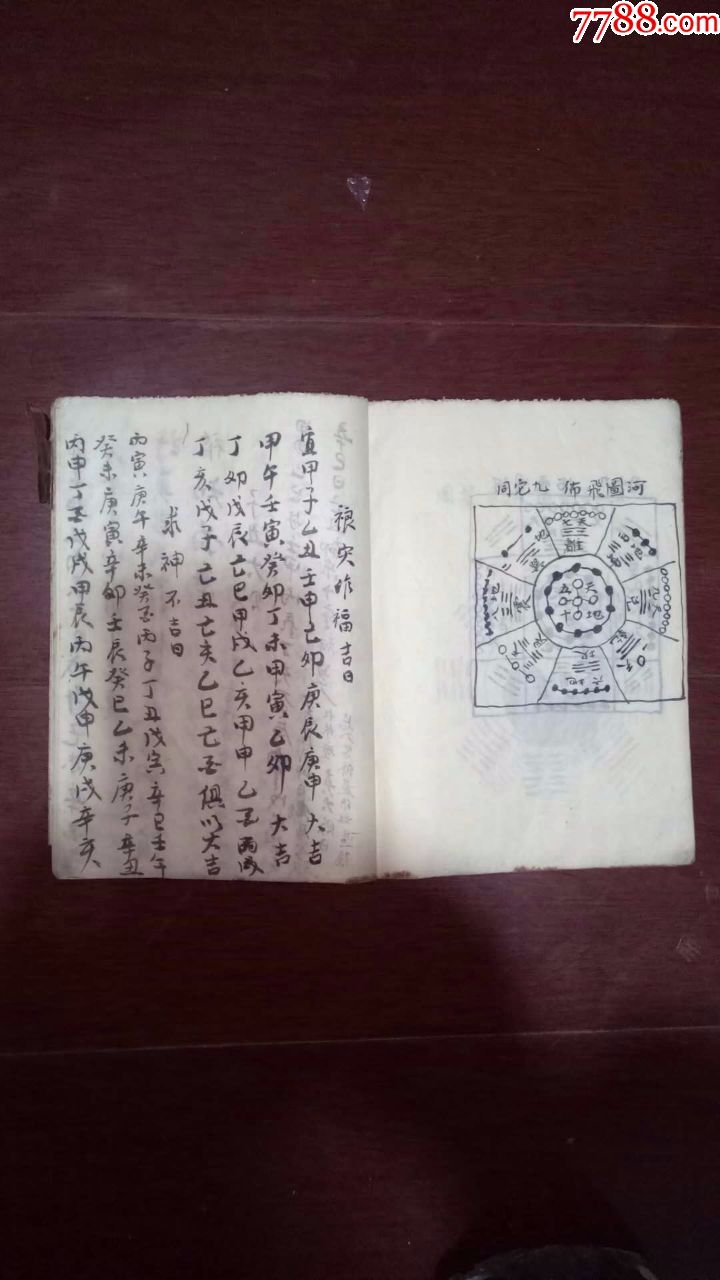 7788.com
河圖飛佈九宅同
天七
離
巽
坤
震
兌
乾
坎
地八
天五
地十
天九
六地
禳灾作福吉日
宜甲子乙丑壬申己卯庚辰庚申大吉
甲午壬寅癸卯丁未甲寅乙卯大吉
丁卯戊辰亡巳甲戌乙亥甲申乙丙戌
丁亥戊子亡丑亡亥乙巳亡俱以大吉
求神不吉日
丙寅庚午辛未癸丙子丁丑戊寅辛巳壬午
癸未庚寅辛卯壬辰癸巳乙未庚子辛丑
丙申丁戊戌甲辰丙午戊申庚戌辛亥